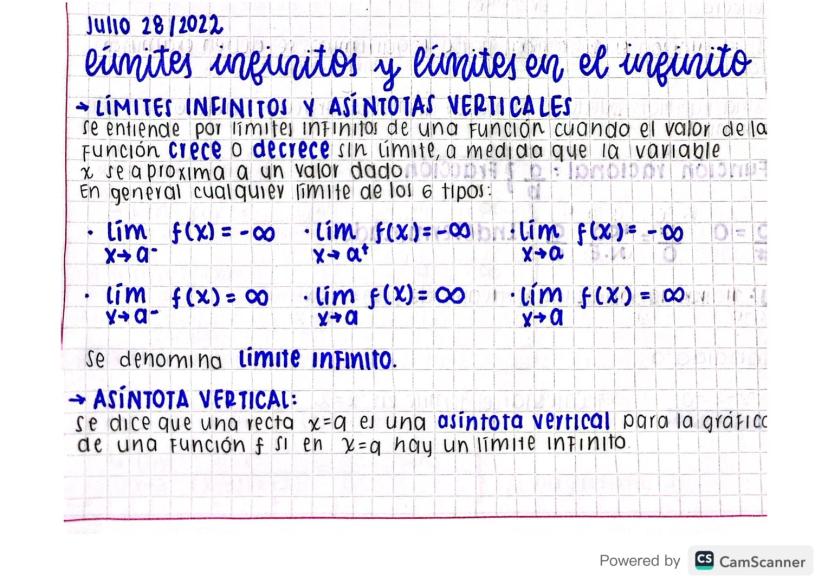 Julio 28/2022
límites infinitos y límites en el infinito
→ LÍMITES INFINITOS Y ASÍNTOTAS VERTICALES
se entiende por límites infinitos de una función cuando el valor de la
función crece o decrece sin límite, a medida que la variable
x se aproxima a un valor dado.
En general cualquier límite de los 6 tipos:
· lím f(x) = -∞ · lím f(x) = -∞ · lím f(x) = -∞
x→a⁻ x→a⁺ x→a
· lím f(x) = ∞ · lím f(x) = ∞ · lím f(x) = ∞
x→a⁻ x→a x→a
se denomina límite infinito.
→ ASÍNTOTA VERTICAL:
se dice que una recta x=a es una asíntota vertical para la gráfica
de una función f si en x=a hay un límite infinito
Powered by CS CamScanner